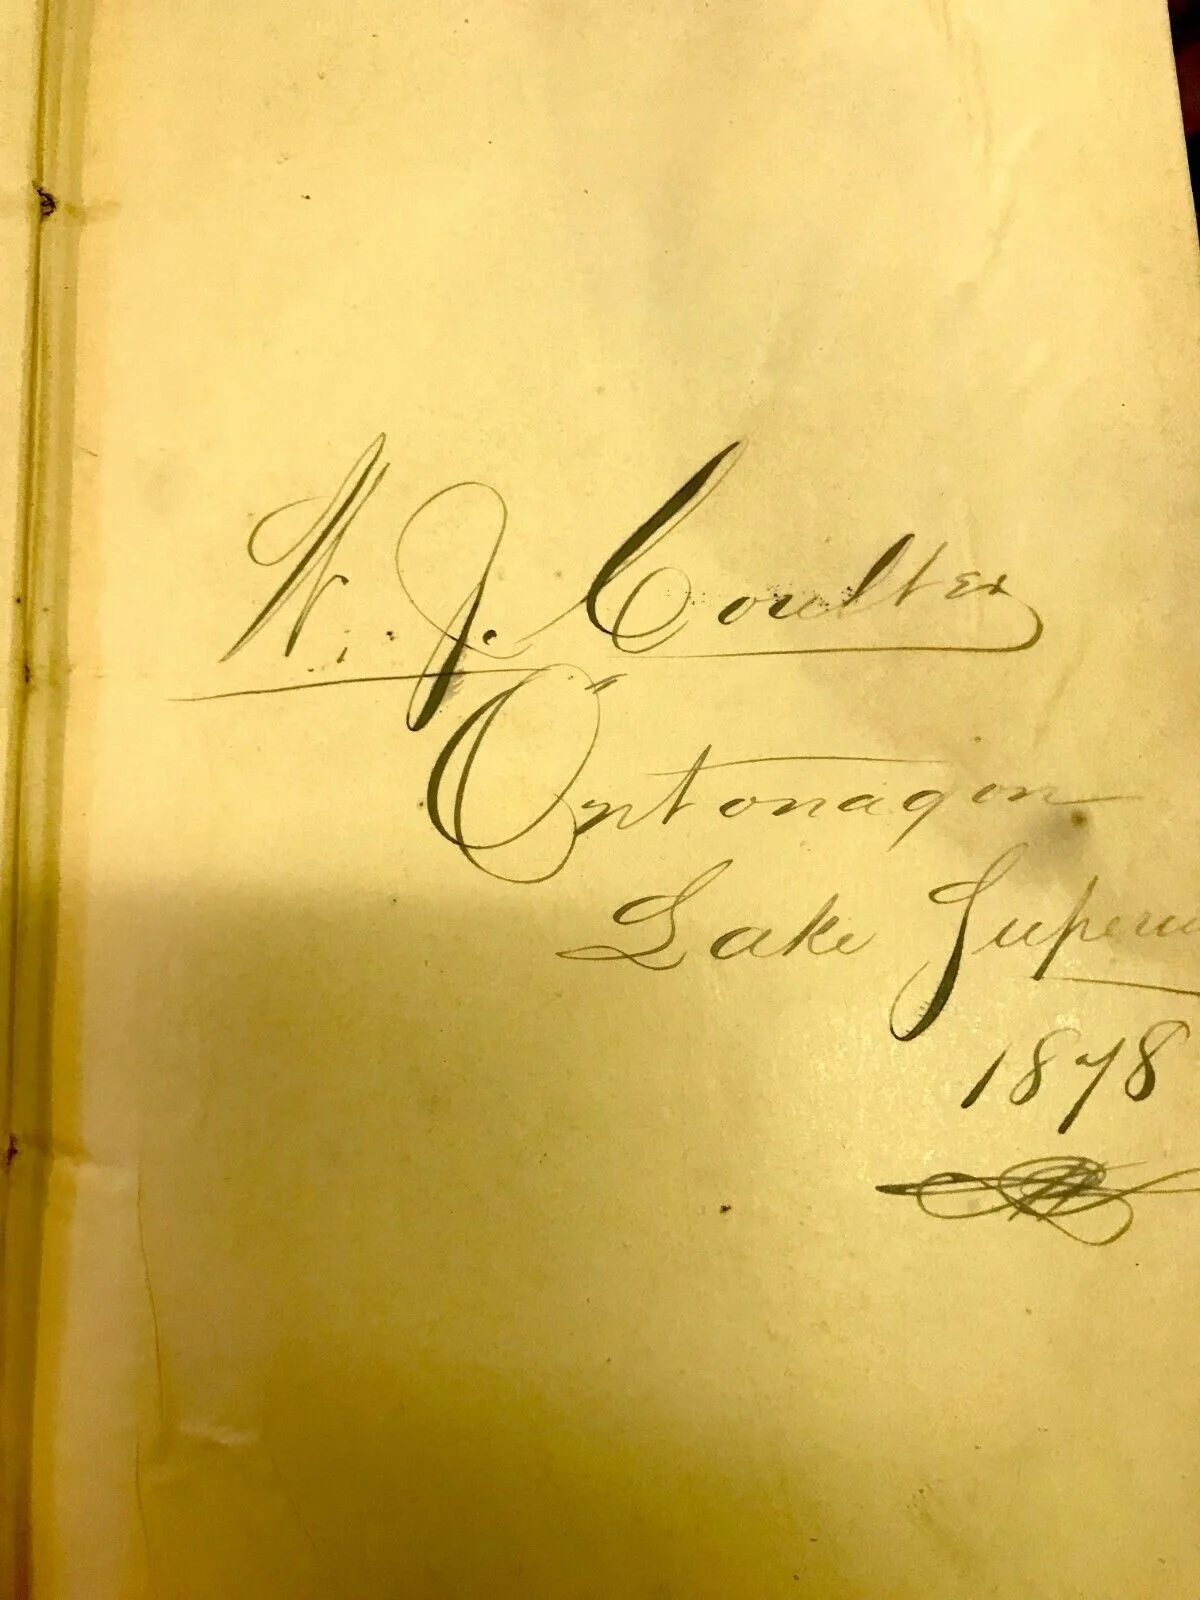 W. J. Coulter
Ontonagon
Lake Superi
1878